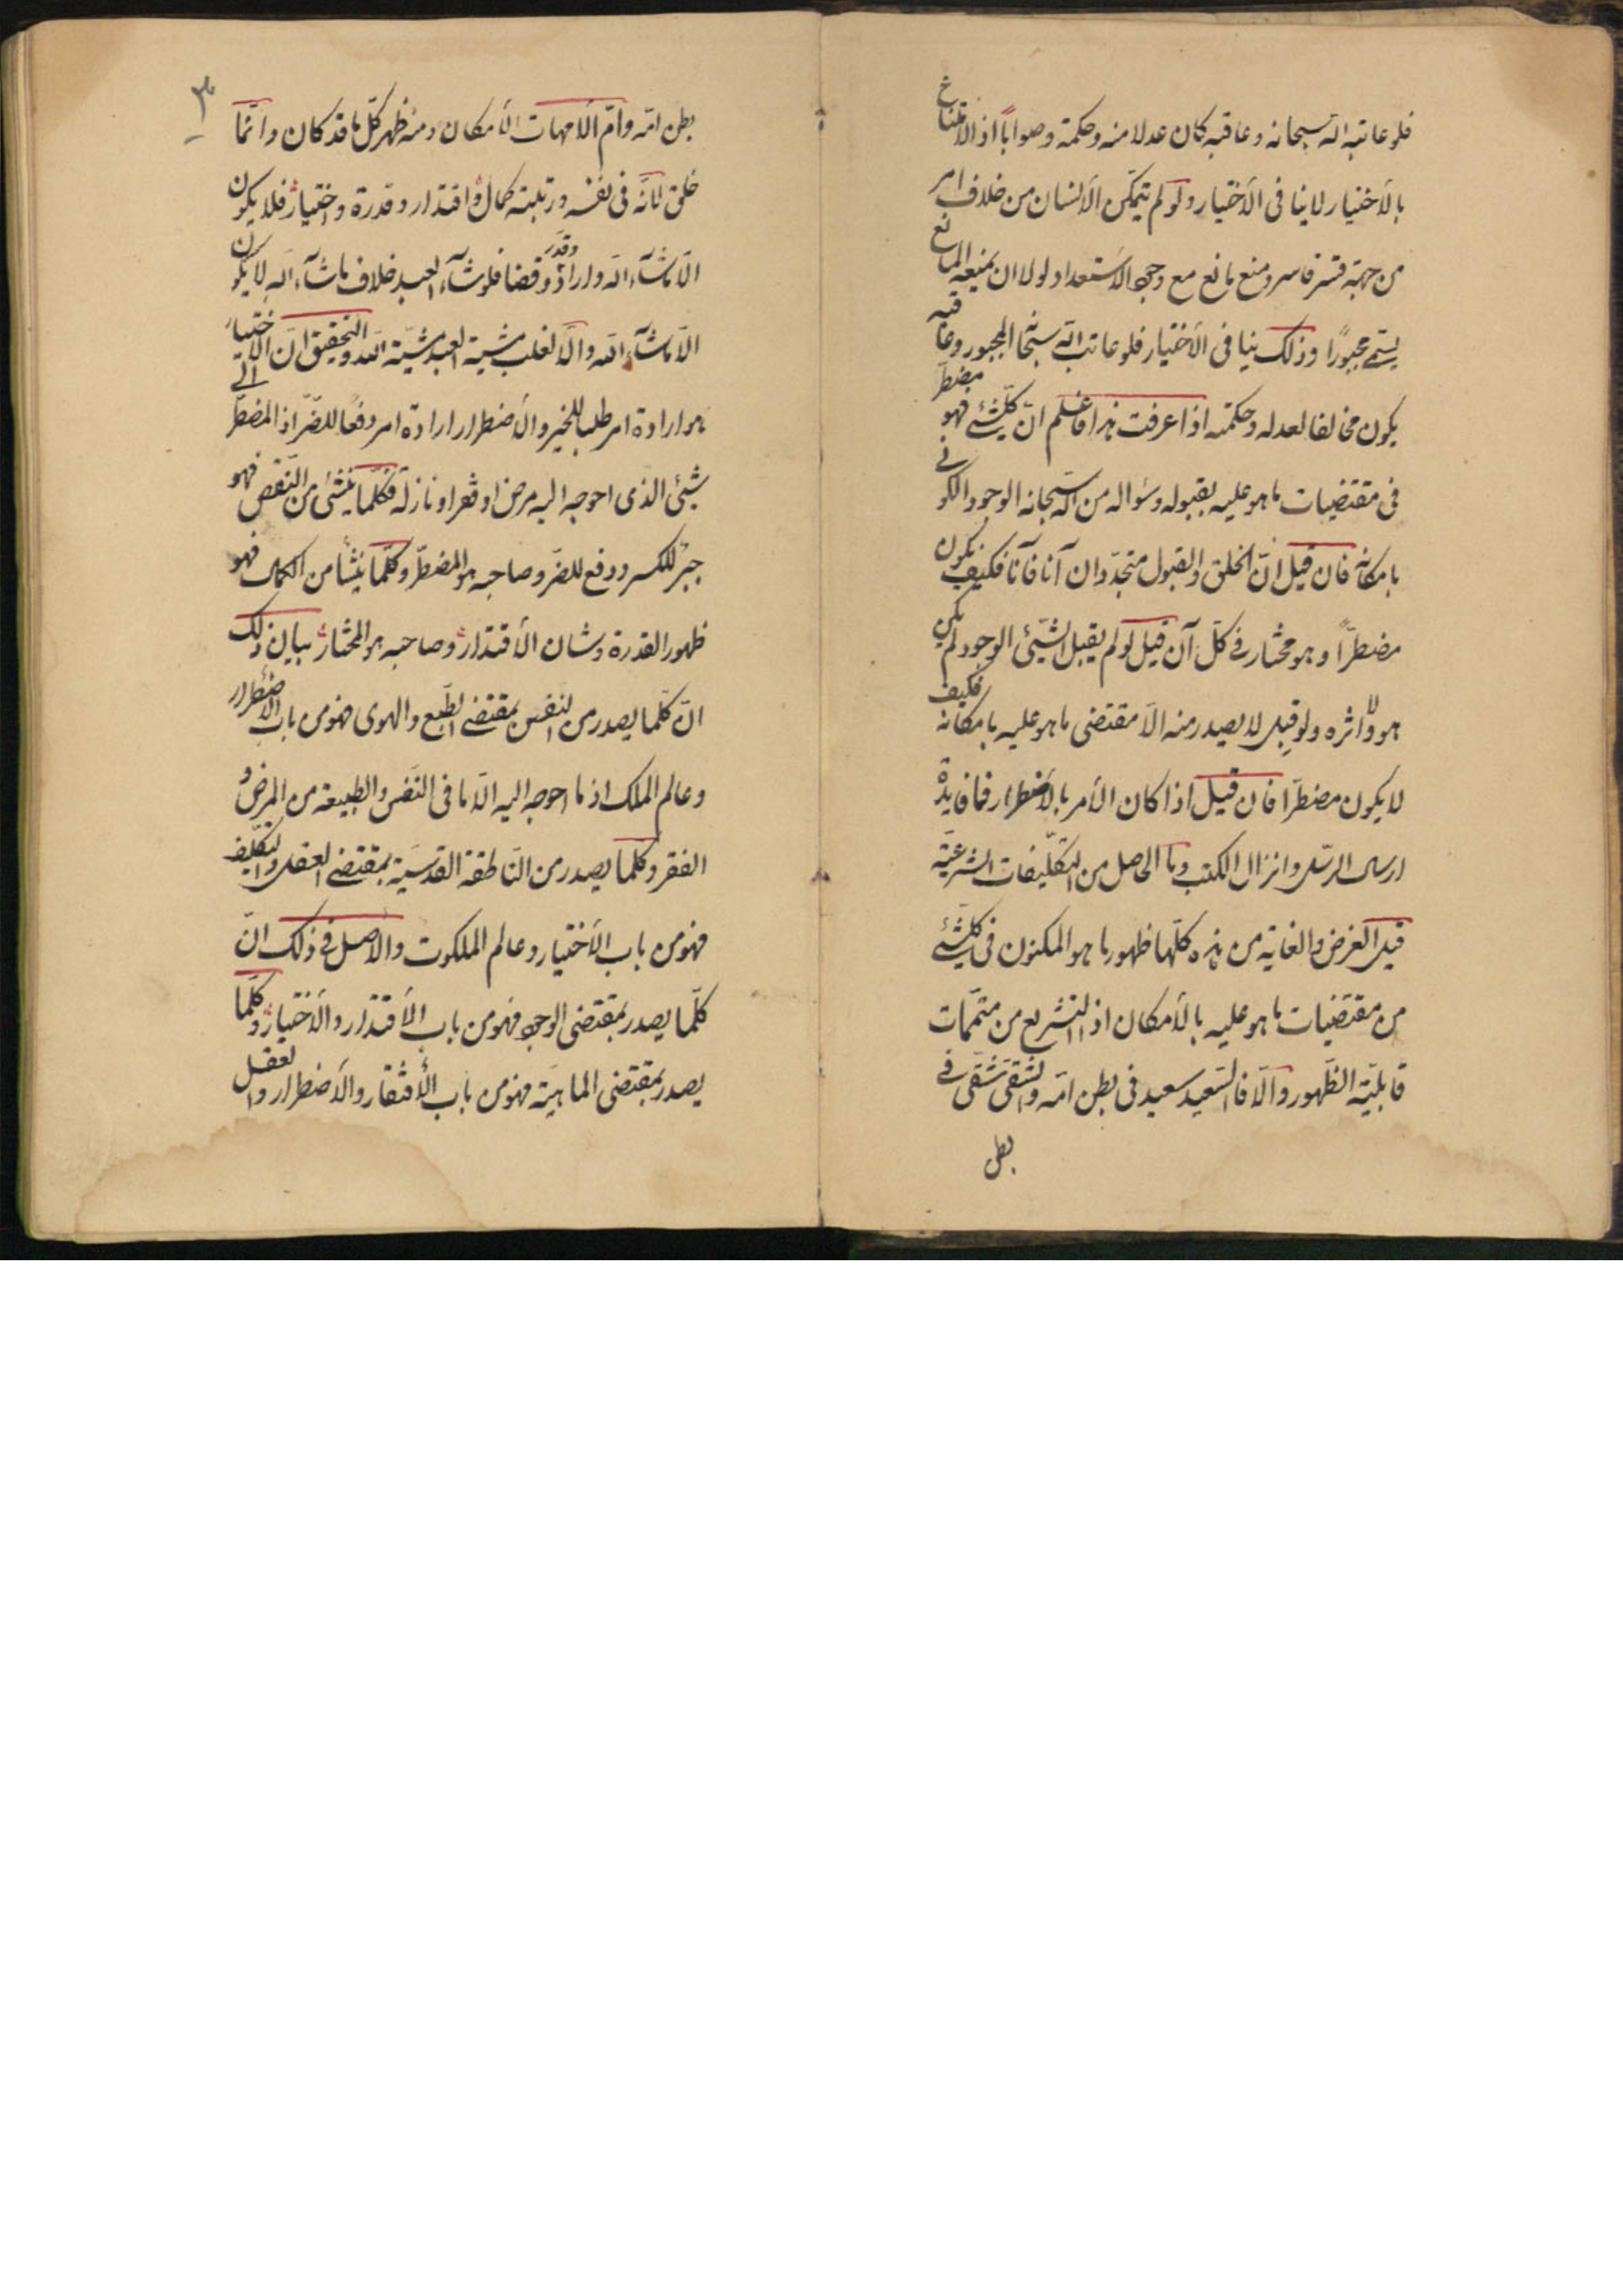 فلو عاتبه الله سبحانه و عاقبه كان عدلا منه و حكمة و صوابًا اذ الامتناع
بالأختيار لا ينافى الأختيار و لو لم يتمكن الأنسان من خلاف امر
من جهة قسر قاسر و منع مانع مع وجود الأستعداد لولا ان يمنعه المانع
يسمّى مجبورًا و ذلك ينافى الأختيار فلو عاتب الله سبحانه المجبور و عاقبه
يكون مخالفا لعدله و حكمته اذا عرفت هذا فاعلم انّ كلّشئ فهو مضطرّ
فى مقتضيات ما هو عليه بقبوله و سئواله من الله سبحانه الوجود الكونى
بامكانه فان قيل انّ الخلق و القبول متجدّدان آنا فآنا فكيف يكون
مضطرّاً و هو مختار فى كلّ آن قيل لو لم يقبل الشّيئ الوجود لم يكن
هو و لا اثره و لو قبل لا يصدر منه الّا مقتضى ما هو عليه بامكانه فكيف
لا يكون مضطرّا فان قيل اذا كان الأمر بالأضطرار فما فايدة
ارسال الرسل و انزال الكتب و ما الحاصل من التكليفات الشرعيّة
قيل الغرض و الغاية من هذه كلّها ظهور ما هو المكنون فى كلّشئ
من مقتضيات ما هو عليه بالأمكان اذ التشريع من متمّمات
قابليّة الظّهور و الّا فالسّعيد سعيد فى بطن امّه و الشّقى شقى فى
بطن
٣
بطن امّه و امّ الأمهات الأمكان و منه ظهر كلّ ما قد كان و انّما
خلق لانّه فى نفسه و رتبته كمال و اقتدار و قدرة و اختيار فلا يكون
الّا ما شآء الله و اراد و قدّر و قضا فلو شآء العبد خلاف ما شآء الله لا يكون
الّا ما شآء الله و الّا لغلب مشية العبد مشيّة الله و التحقيق انّ الأختيار
هو ارادة امر طلبا للخير و الأضطرار ارادة امر دفعًا للضّرّ اذ المضطرّ الى
شيئ الذى احوجه اليه مرض او فقر او نازلة فكلّما ينشئ من النّقص فهو
جبر للكسر و دفع للضرّ و صاحبه هو المضطرّ و كلّما ينشأ من الكمال فهو
ظهور القدرة و شان الأقتدار و صاحبه هو المختار بيان ذلك
انّ كلّما يصدر من النفس بمقتضى الطّبع و الهوى فهو من باب الأضطرار
و عالم الملك اذ ما احوجه اليه الّا ما فى النّفس و الطبيعة من المرض و
الفقر و كلّما يصدر من النّاطقة القدسيّة بمقتضى العقل و التكليف
فهو من باب الأختيار و عالم الملكوت و الأصل فى ذلك انّ
كلّما يصدر بمقتضى الوجود فهو من باب الأقتدار و الأختيار و كلّما
يصدر بمقتضى الماهيّة فهو من باب الأفتقار و الأضطرار و العقل